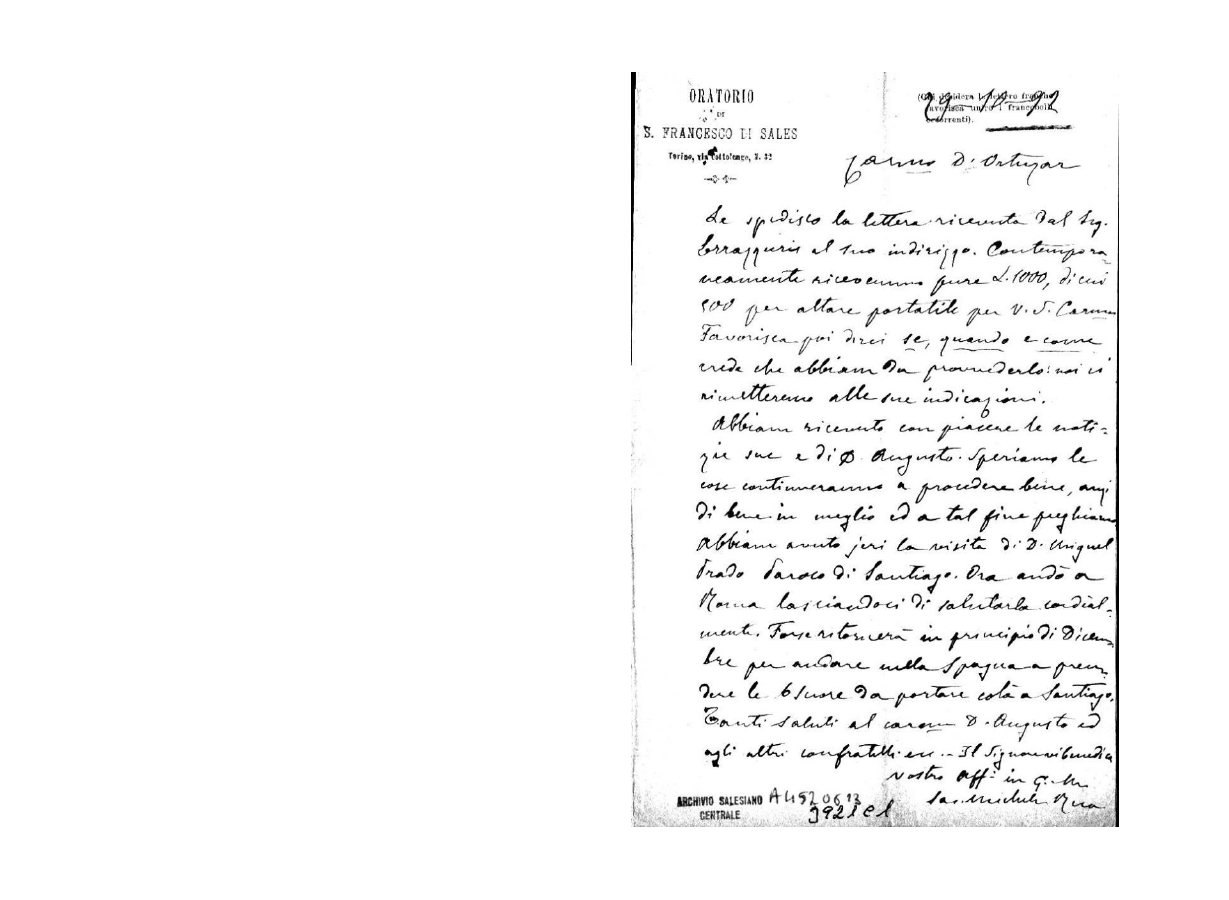 ORATORIO
DI
S. FRANCESCO DI SALES
Torino, via Cottolengo, N. 32
(Chi desidera le lettere
favorisca unire i francobolli
occorrenti).
29-10-92
Carmo D. Ortuzar
Le spedisco la lettera ricevuta dal Sig.
Errazzuris al suo indirizzo. Contempora-
neamente ricevemmo pure L. 1000, di cui
500 per altare portatile per V. S. Carma
Favorisca poi dirci se, quando e come
crede che abbiam da provvederlo: noi ci
rimetteremo alle sue indicazioni.
Abbiam ricevuto con piacere le noti-
zie sue e di D. Augusto. Speriamo le
cose continueranno a procedere bene, anzi
di bene in meglio ed a tal fine preghiamo
Abbiam avuto jeri la visita di D. Miguel
Prado Paroco di Santiago. Ora andò a
Roma lasciandoci di salutarla cordial-
mente. Forse ritornerà in principio di Dicem-
bre per andare nella Spagna a pren-
dere le 6 suore da portare colà a Santiago.
Tanti saluti al carmo D. Augusto ed
agli altri confratelli ecc. - Il Signore vi benedica
Vostro Aff. in G. M.
Sac. Michele Rua
ARCHIVIO SALESIANO
CENTRALE
A4520613
3921 E1